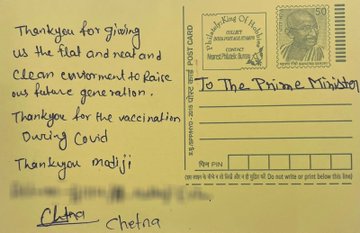 Thankyou for giving
us the flat and neat and
clean enviorment to Raise
our future generation.
Thankyou for the vaccination
During Covid
Thankyou modiji
Chetna
Chetna
Philately-King Of Hobbies
COLLECT
CONTACT
Nearest Philatelic Bureau
50
POST CARD
पोस्ट कार्ड
To The Prime Minister
पिन PIN
इस लाइन के नीचे न तो लिखें और न ही मुद्रित करें। Do not write or print below this line